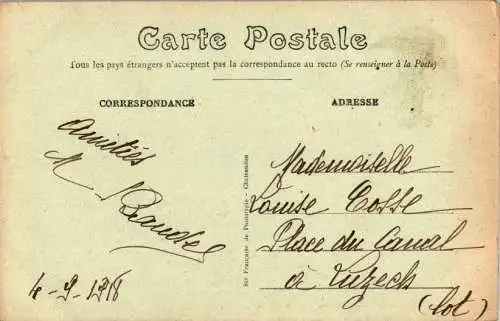 Carte Postale
Tous les pays étrangers n'acceptent pas la correspondance au recto (Se renseigner à la Poste)
CORRESPONDANCE
ADRESSE
Amitiés
M
Mademoiselle
Louise Cosse
Place du Canal
à Luzech
(Lot)
4-9-1918
Sté Française de Phototypie - Châteaudun